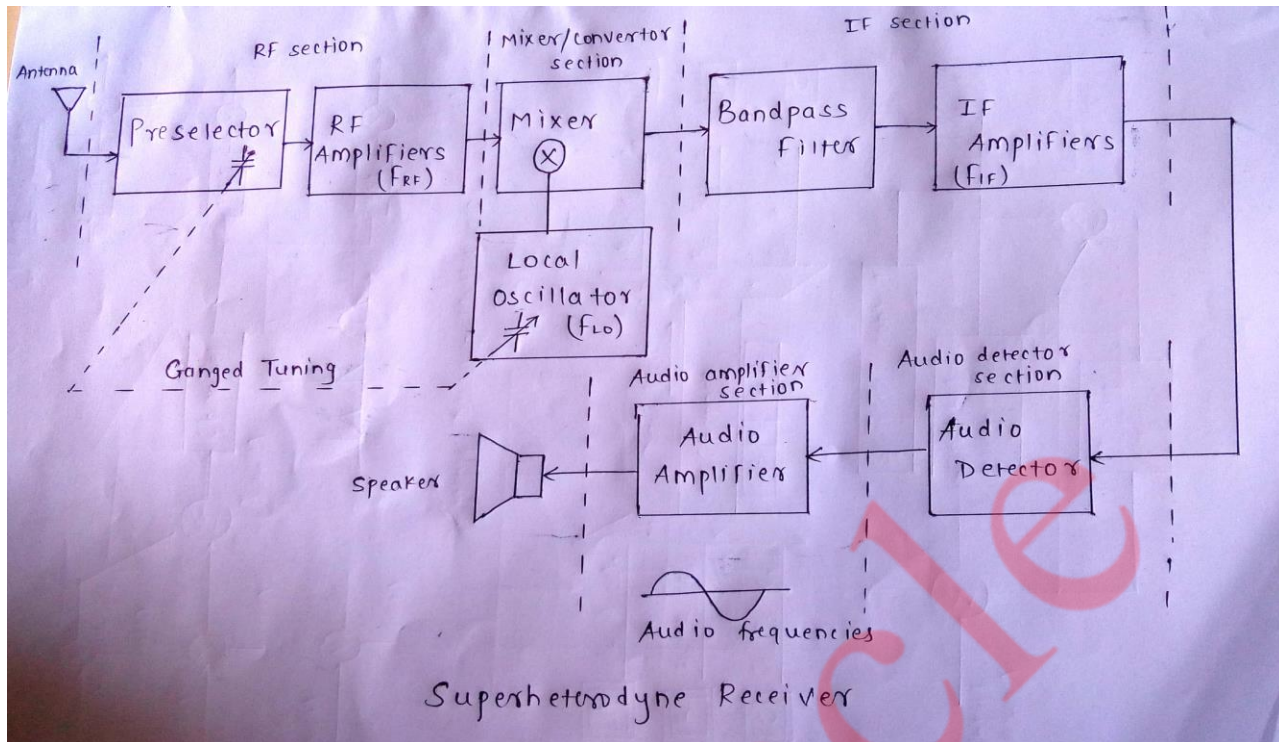 RF section
Mixer/convertor
section
IF section
Antenna
Preselector
RF
Amplifiers
(fRF)
Mixer
Bandpass
Filter
IF
Amplifiers
(fIF)
Local
Oscillator
(fLO)
Ganged Tuning
Audio amplifier
section
Audio detector
section
Speaker
Audio
Amplifier
Audio
Detector
Audio frequencies
Superheterodyne Receiver
cle